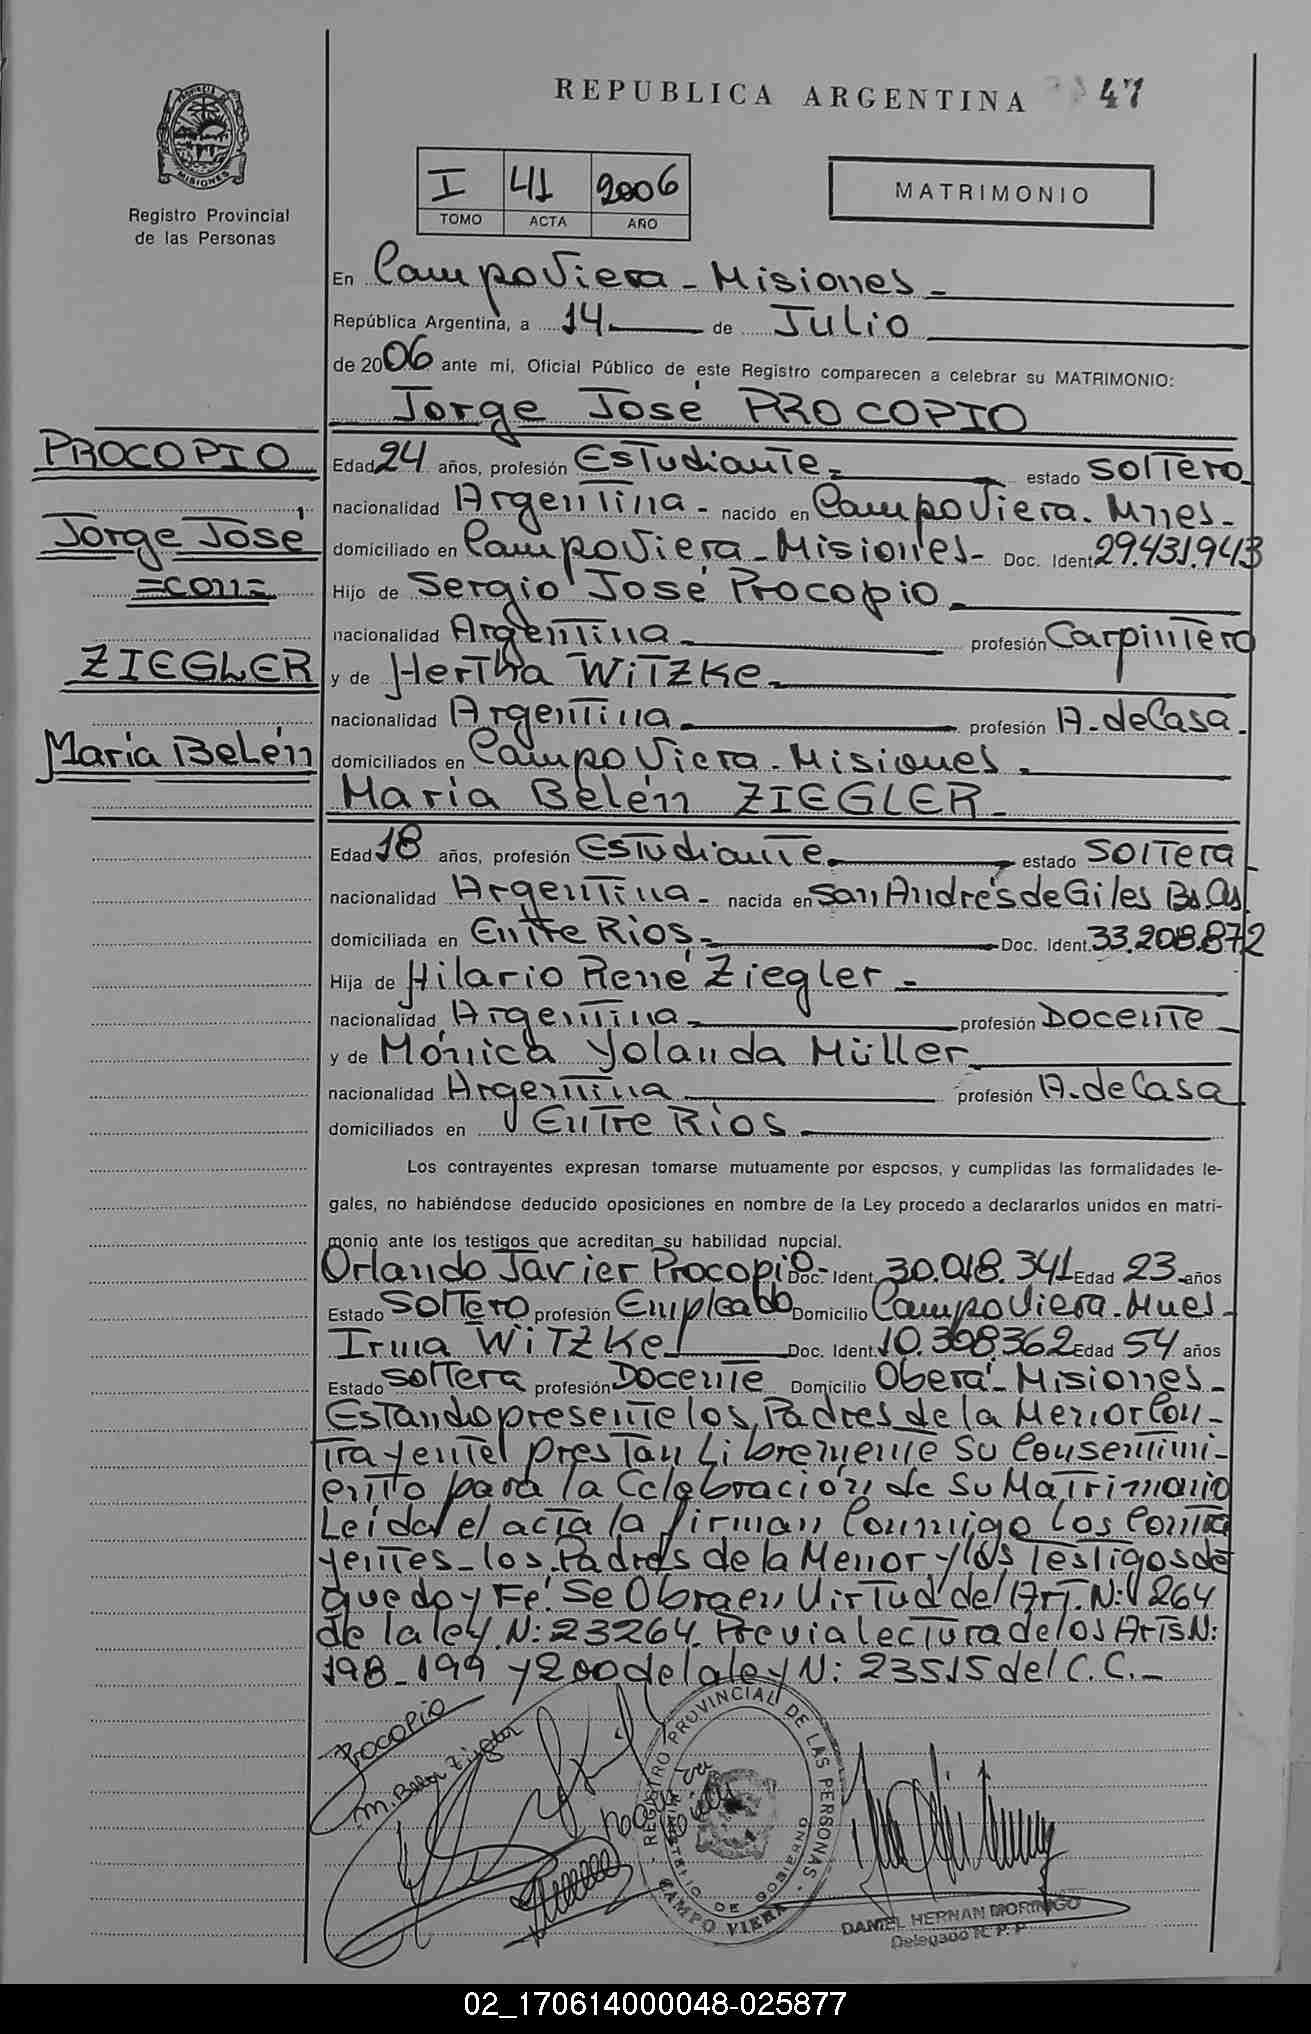 REPUBLICA ARGENTINA 47
MISIONES
Registro Provincial
de las Personas
I 41 2006
TOMO ACTA AÑO
MATRIMONIO
En Campo Viera - Misiones -
República Argentina, a 14 de Julio
de 2006 ante mí, Oficial Público de este Registro comparecen a celebrar su MATRIMONIO:
Jorge José PROCOPIO
PROCOPIO
Jorge José
=con=
ZIEGLER
María Belén
Edad 24 años, profesión Estudiante. estado Soltero
nacionalidad Argentina - nacido en Campo Viera. Mnes-
domiciliado en Campo Viera - Misiones - Doc. Ident. 29.431.943
Hijo de Sergio José Procopio
nacionalidad Argentina profesión Carpintero
y de Hertha WiTZKe
nacionalidad Argentina profesión A. de Casa.
domiciliados en Campo Viera - Misiones
María Belén ZIEGLER
Edad 18 años, profesión Estudiante estado Soltera
nacionalidad Argentina - nacida en San Andrés de Giles Bs. As.
domiciliada en Entre Rios - Doc. Ident. 33.208.872
Hija de Hilario René Ziegler
nacionalidad Argentina profesión Docente
y de Mónica Yolanda Müller
nacionalidad Argentina profesión A. de Casa
domiciliados en Entre Rios
Los contrayentes expresan tomarse mutuamente por esposos, y cumplidas las formalidades le-
gales, no habiéndose deducido oposiciones en nombre de la Ley procedo a declararlos unidos en matri-
monio ante los testigos que acreditan su habilidad nupcial.
Orlando Javier Procopio - Doc. Ident. 30.018.341 Edad 23 años
Estado Soltero profesión Empleado Domicilio Campo Viera. Mnes-
Irma WiTZKe Doc. Ident. 10.308.362 Edad 54 años
Estado Soltera profesión Docente Domicilio Oberá - Misiones -
Estando presente los Padres de la Menor Con-
trayente prestan Libremente Su Consentimi-
ento para la Celebración de Su Matrimonio
Leida el acta la firman Conmigo los Contra
yentes - los Padres de la Menor y los Testigos de
que doy Fé. Se Obra en Virtud del Art. N: 264
de la ley N: 23264. Previa lectura de los Arts N:
198 - 199 y 200 de la ley N: 23515 del C.C. -
Procopio
M. Belén Ziegler
REGISTRO PROVINCIAL DE LAS PERSONAS
MINISTERIO DE GOBIERNO
CAMPO VIERA
DANIEL HERNAN MORINIGO
Delegado R. P. P.
02_170614000048-025877